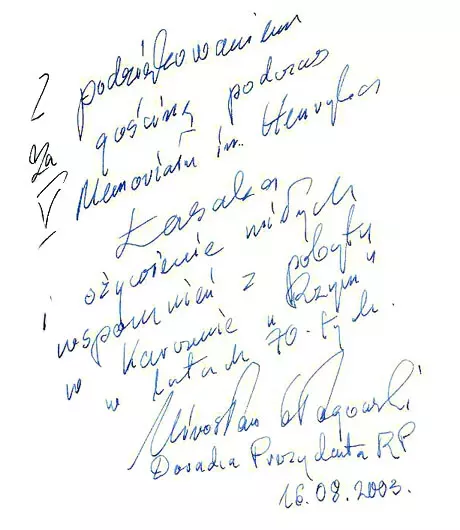 Z podziękowaniem
za gościnę podczas
V Memoriału im. Henryka
Łasaka
i ożywienie miłych
wspomnień z pobytu
w Karczmie "Rzym"
w latach 70-tych.
Mirosław
Doradca Prezydenta RP
16.08.2003.